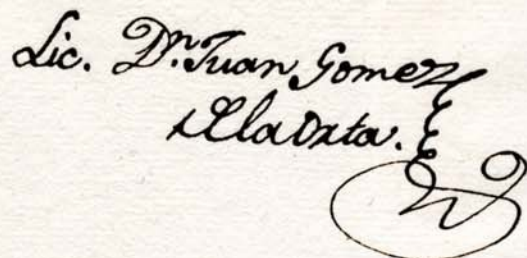 Lic. Dn. Juan Gomez
dela Orta.